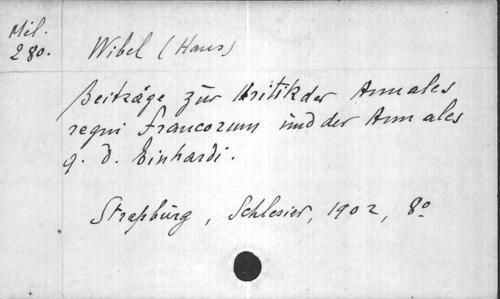 Mél.
280.
Wibel (Hans)
Beiträge zur Kritik der Annales
regni Francorum und der Annales
q. d. Einhardi.
Straßburg, Schlesier, 1902, 8º